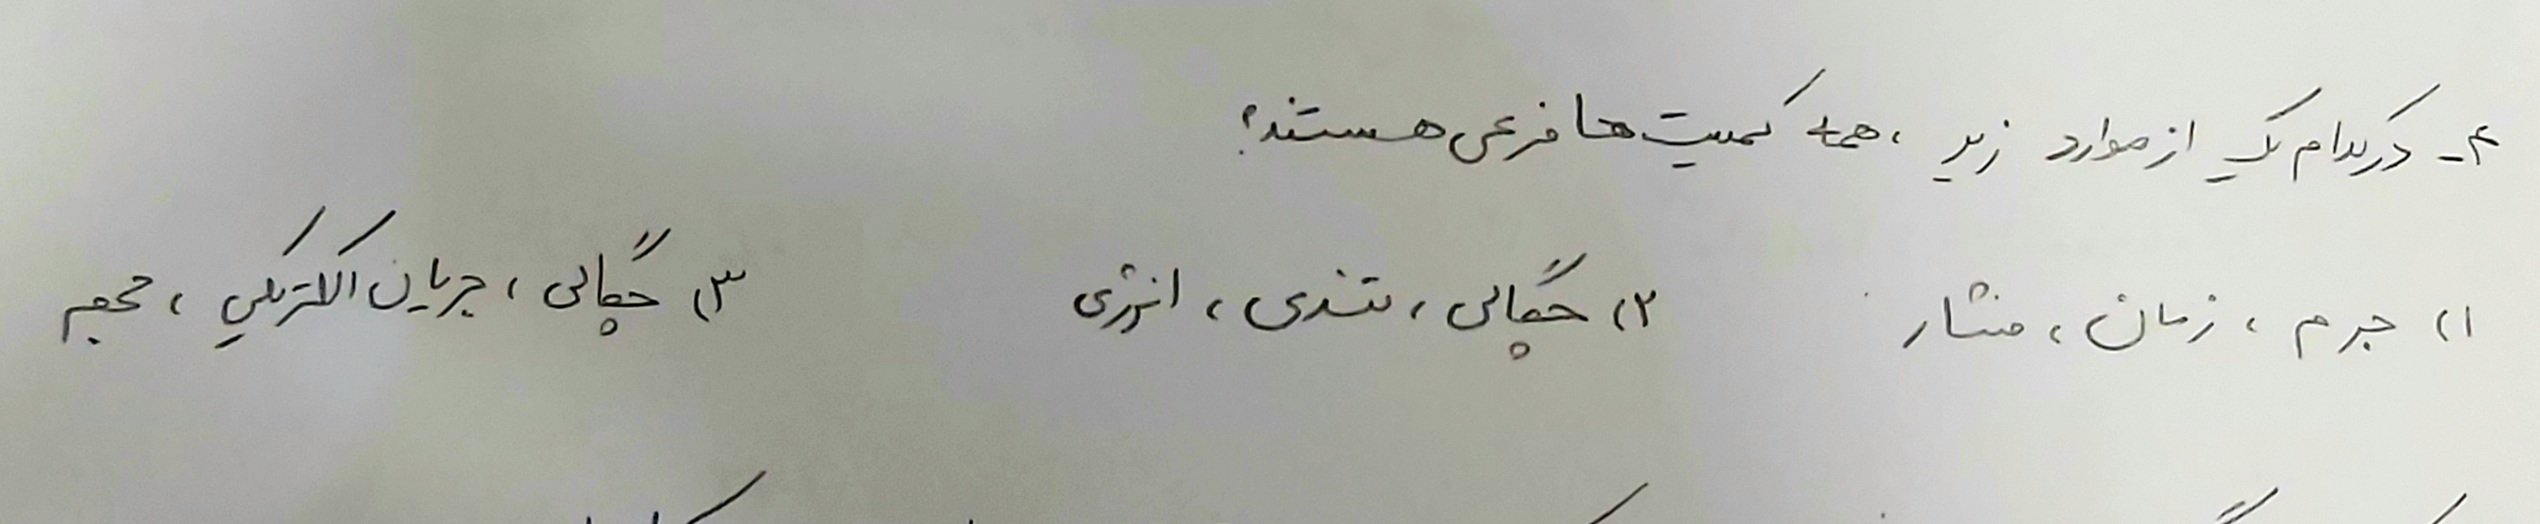 ۴- در کدام یک از موارد زیر ، همه کمیت ها فرعی هستند؟
۱) جرم ، زمان ، فشار ۲) چگالی ، تندی ، انرژی ۳) چگالی ، جریان الکتریکی ، حجم